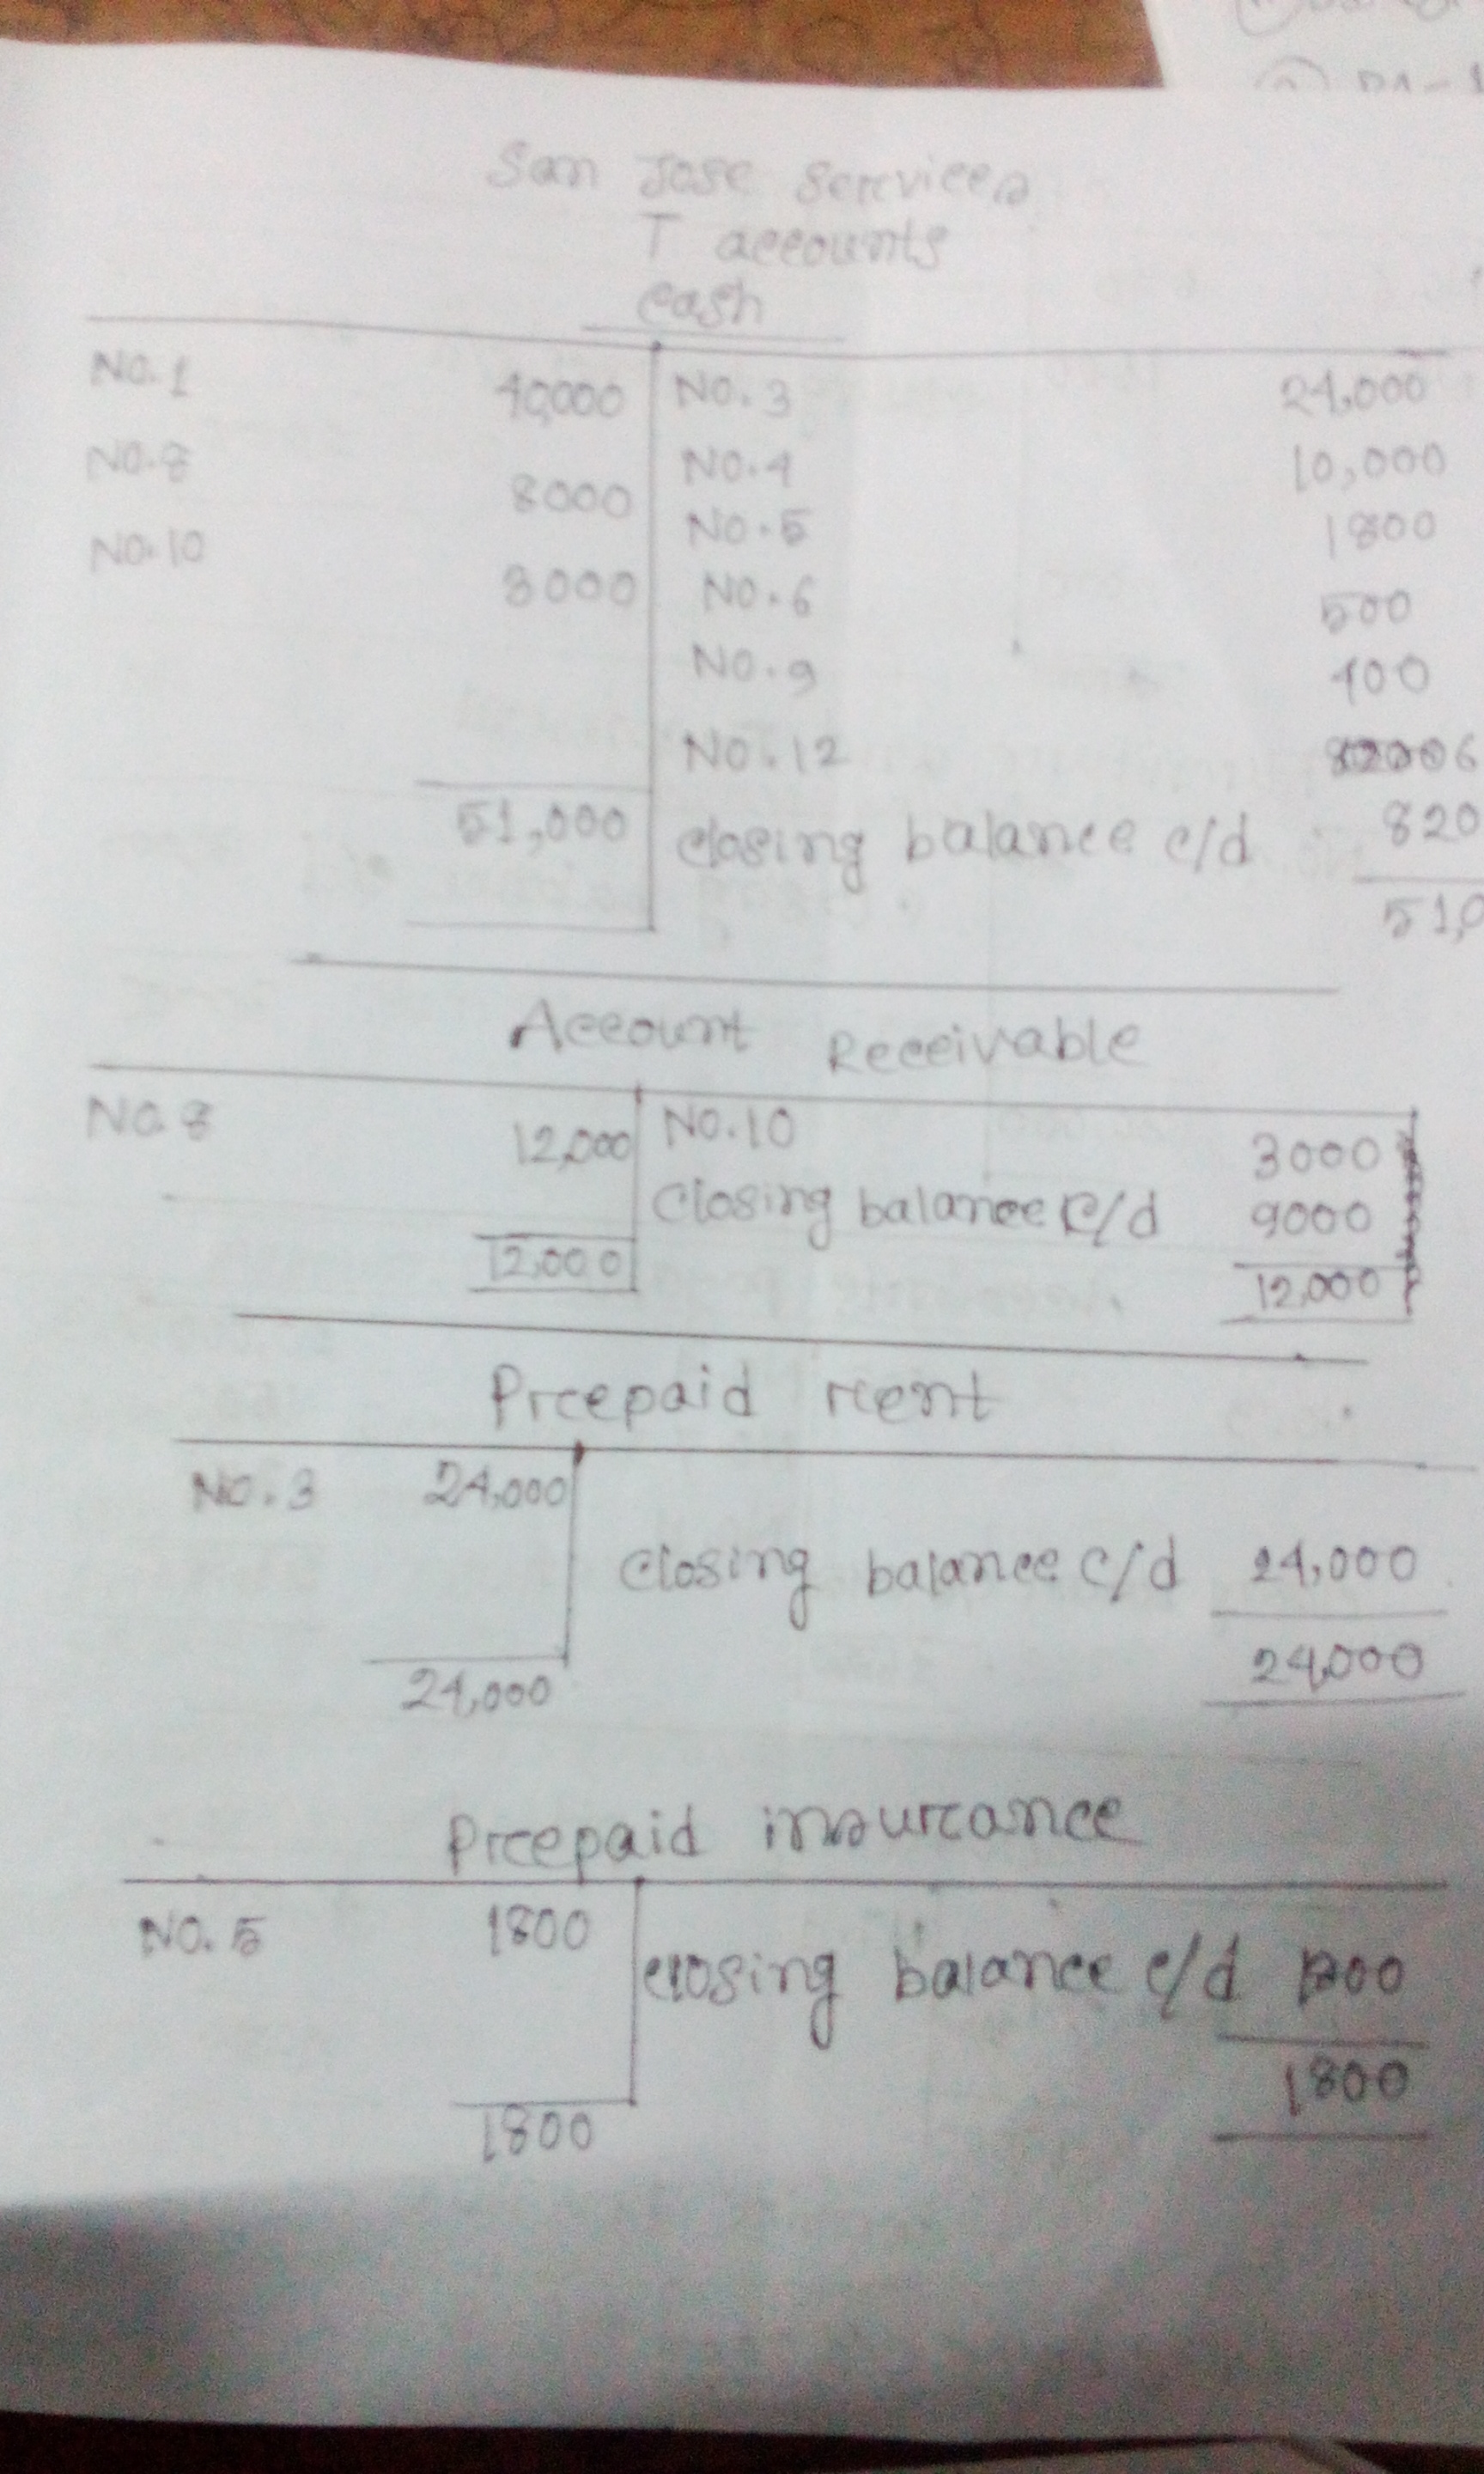 San Jose Services
T accounts
Cash
No.1 40,000 No.3 24,000
No.8 8000 No.4 10,000
No.10 3000 No.5 1800
No.6 500
No.9 400
No.12
51,000 Closing balance c/d 820
51,0
Account Receivable
No.8 12,000 No.10 3000
Closing balance c/d 9000
12,000 12,000
Prepaid rent
No.3 24,000
Closing balance c/d 24,000
24,000 24,000
Prepaid insurance
No.5 1800 Closing balance c/d
1800 1800